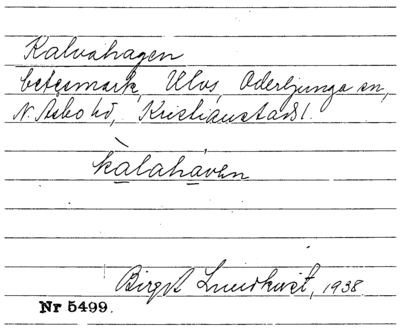 Kalvahagen
betesmark, Ulvs, Oderljunga sn,
N. Åsbo hd, Kristianstads l.
kàlaháven
Birgit Lundkvist, 1938.
Nr 5499.